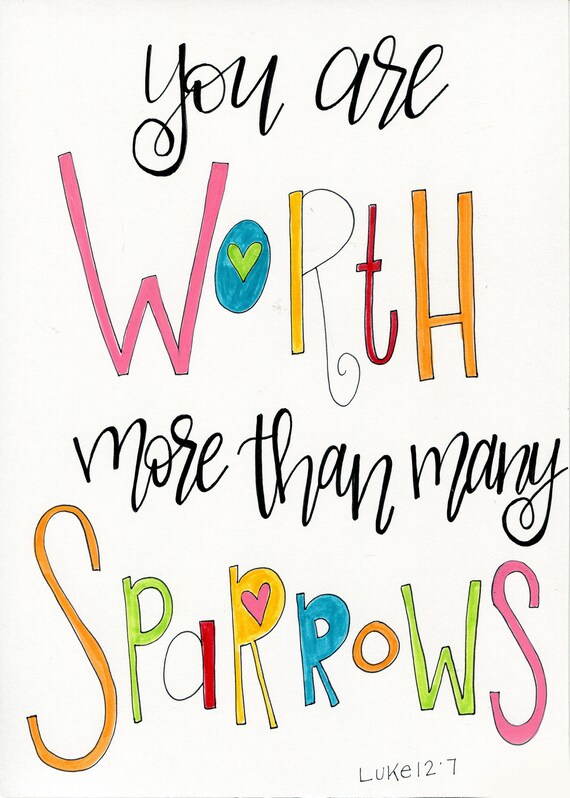 you are
WoRtH
more than many
SPaRROWS
Luke 12·7